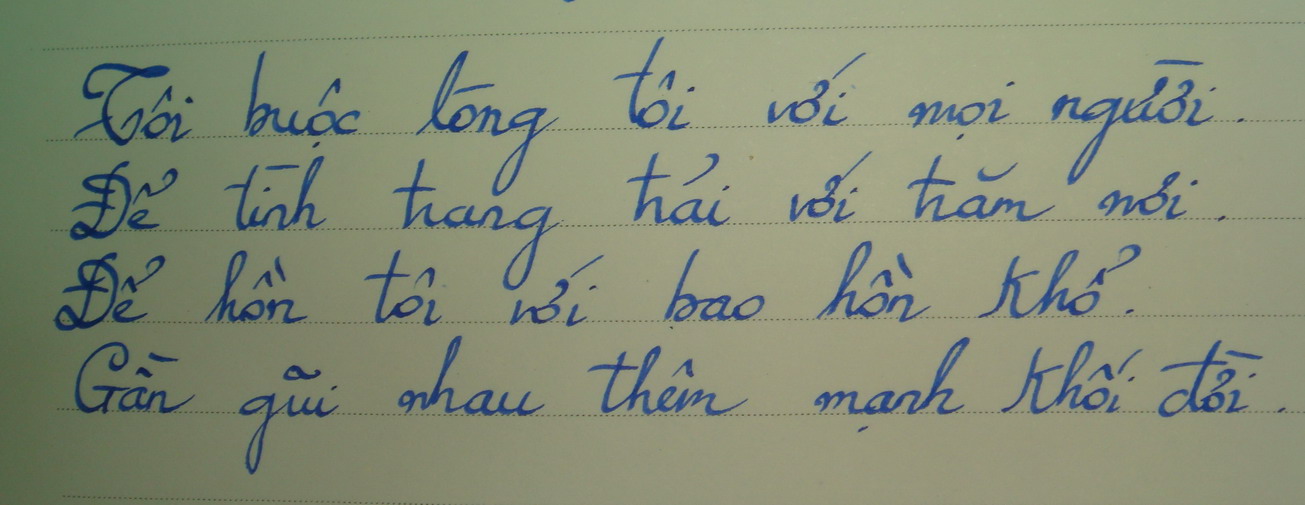 Tôi buộc lòng tôi với mọi người.
Để tình trang trải với trăm nơi.
Để hồn tôi với bao hồn khổ.
Gần gũi nhau thêm mạnh khối đời.